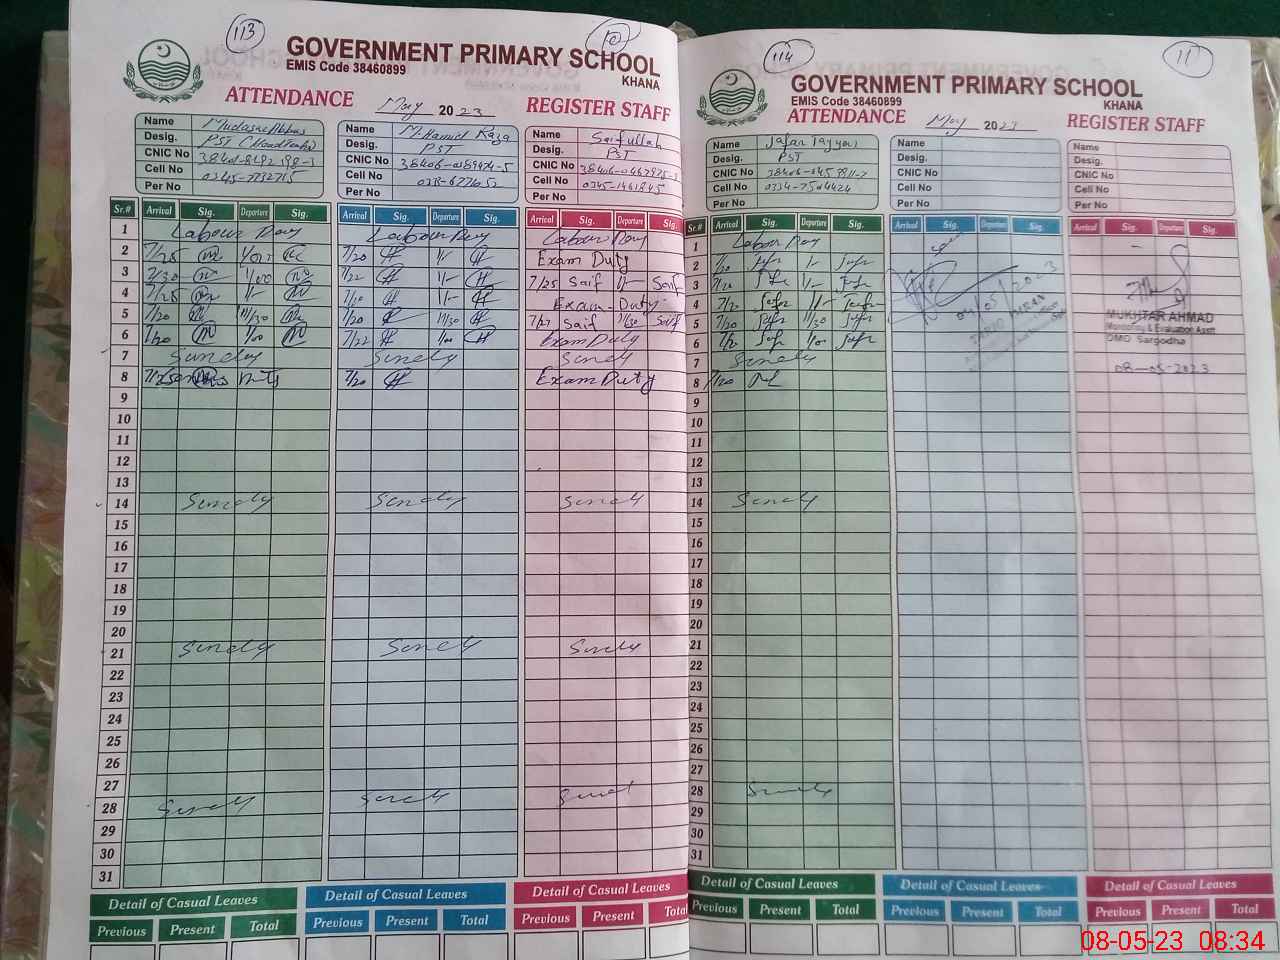 113
10
GOVERNMENT PRIMARY SCHOOL
EMIS Code 38460899
KHANA
ATTENDANCE May 2023 REGISTER STAFF
Name
Desig. PST
CNIC No
Cell No 0345-7732715
Per No
Name M.Hamid Raza
Desig. PST
CNIC No 38406-0189474-5
Cell No
Per No
Name Saifullah
Desig. PST
CNIC No
Cell No 0345-1461845
Per No
Sr.# Arrival Sig. Departure Sig. Arrival Sig. Departure Sig. Arrival Sig. Departure Sig.
1 Labour Day Labour Day Labour Day
2 7/25 7/20 1/- Exam Duty
3 7/30 1/00 7/22 1/- 7/25 Saif 1/- Saif
4 7/25 1/- 7/20 1/- Exam-Duty
5 7/20 11/30 7/20 11/30 7/27 Saif 11/30 Saif
6 7/20 1/00 7/22 1/00 Exam Duty
7 Sunday Sunday Sunday
8 7/20 Exam Duty
9
10
11
12
13
14 Sunday Sunday Sunday
15
16
17
18
19
20
21 Sunday Sunday Sunday
22
23
24
25
26
27
28 Sunday Sunday Sunday
29
30
31
Detail of Casual Leaves Detail of Casual Leaves Detail of Casual Leaves
Previous Present Total Previous Present Total Previous Present Total
114
11
GOVERNMENT PRIMARY SCHOOL
EMIS Code 38460899
KHANA
ATTENDANCE May 2023 REGISTER STAFF
Name Jafar Tayyar
Desig. PST
CNIC No
Cell No 0334-7504424
Per No
Name
Desig.
CNIC No
Cell No
Per No
Name
Desig.
CNIC No
Cell No
Per No
Sr.# Arrival Sig. Departure Sig. Arrival Sig. Departure Sig. Arrival Sig. Departure Sig.
1 Labour Day
2 7/20 Jafr 1/- Jafr
3 7/20 Jafr 1/- Jafr
4 7/20 Jafr 1/- Jafr
5 7/20 Jafr 11/30 Jafr
6 7/20 Jafr 1/00 Jafr
7 Sunday
8 7/20
04/05/2023
TARIQ IMRAN
MUKHTAR AHMAD
Monitoring & Evaluation Asstt
DMO Sargodha
08-05-2023
9
10
11
12
13
14 Sunday
15
16
17
18
19
20
21
22
23
24
25
26
27
28 Sunday
29
30
31
Detail of Casual Leaves Detail of Casual Leaves Detail of Casual Leaves
Previous Present Total Previous Present Total Previous Present Total
08-05-23 08:34